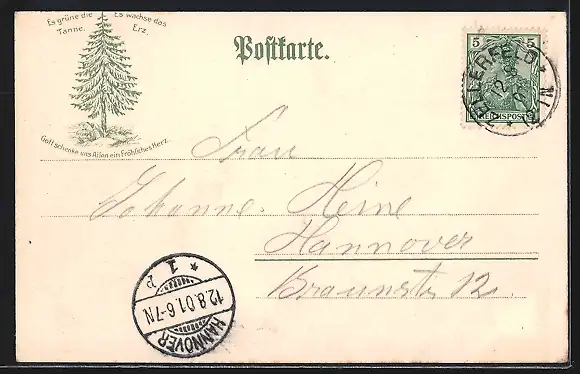 Es grüne die Es wachse das
Tanne. Erz.
Gott schenke uns Allen ein Fröhliches Herz.
Postkarte.
5 5
REICHSPOST
ZELLERFELD
12 8
Frau
Johanne Heine
Hannover
Braunstr 12.
* 1 P
12.8.01.6-7N
HANNOVER